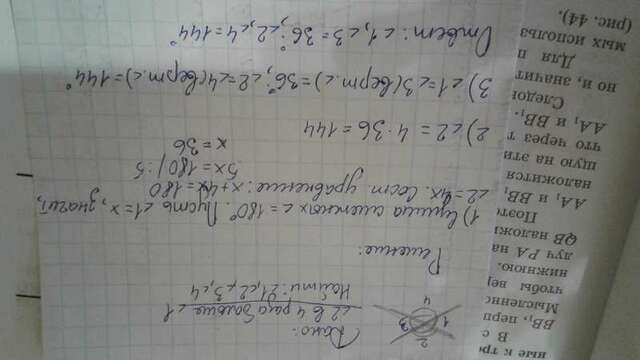 ные к тр
В с
BB₁, перп
Мысленно
чтобы вер
нижнюю.
луч PA на
QB налож
Поэто
AA₁ и BB₁
наложится
щую на эти
что через т
AA₁ и BB₁.
Следов
но и, значит
Для п
мых использ
(рис. 44).
2
1 3
4
Дано:
∠2 в 4 раза больше ∠1
Найти: ∠1,∠2,∠3,∠4
Решение:
1) Сумма смежных ∠ = 180°. Пусть ∠1 = x, значит,
∠2 = 4x. Сост. уравнение: x + 4x = 180
5x = 180 / :5
x = 36
2) ∠2 = 4 · 36 = 144
3) ∠1 = ∠3 (верт. ∠) = 36°; ∠2 = ∠4 (верт. ∠) = 144°
Ответ: ∠1, ∠3 = 36°; ∠2, ∠4 = 144°